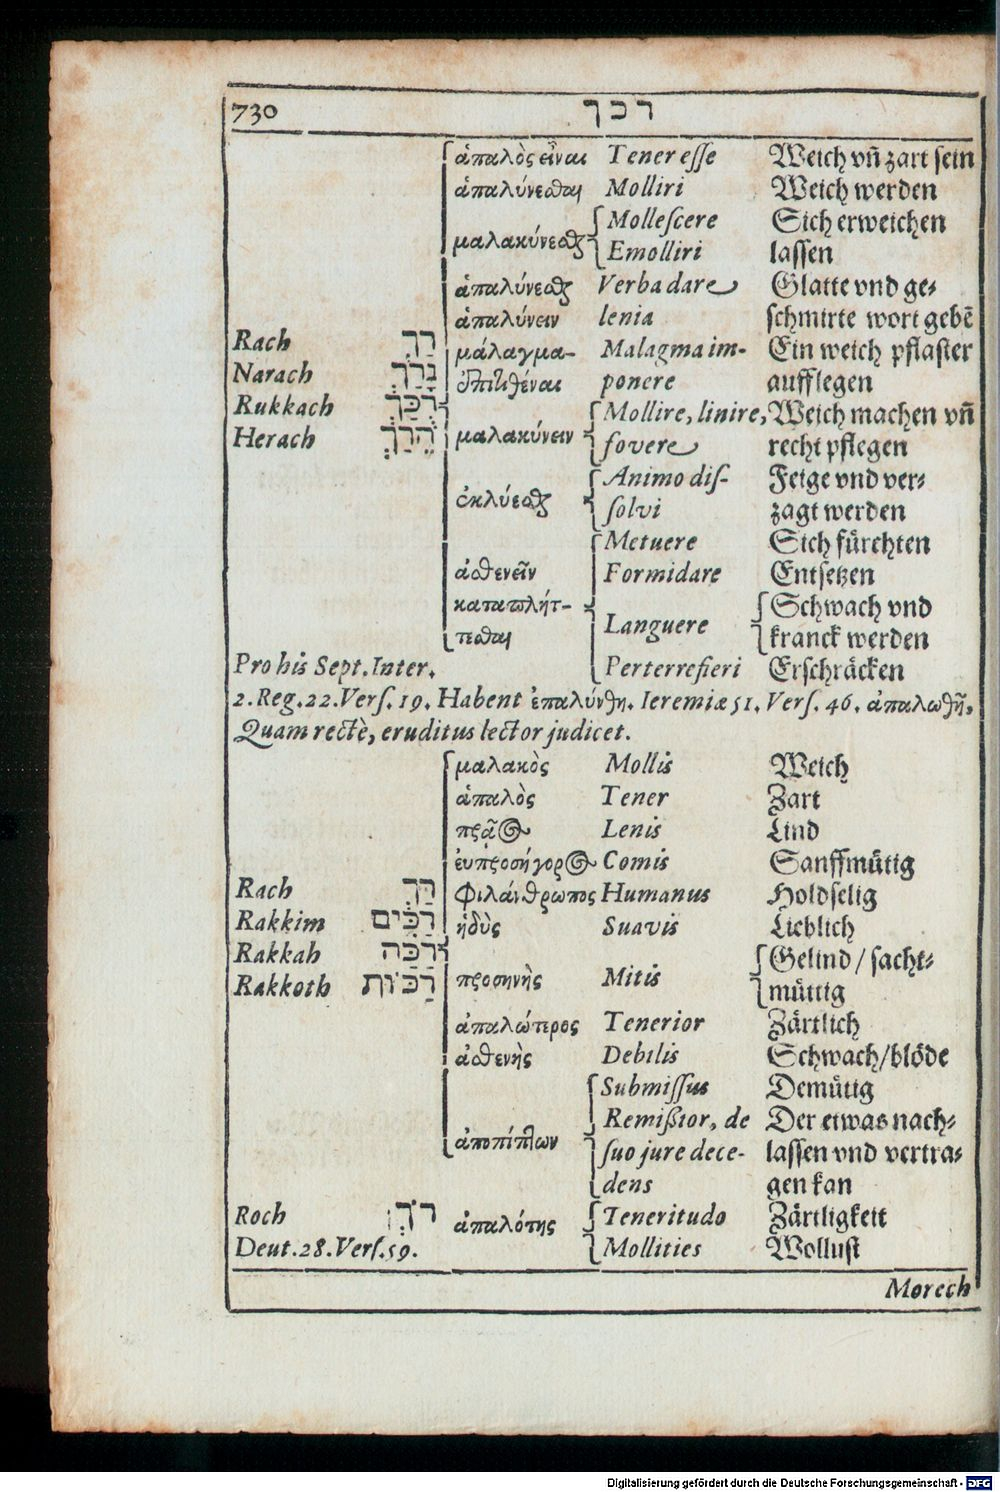 730 רכך
ἁπαλὸς εἶναι Tener esse Weich vñ zart sein
ἁπαλύνεσθαι Molliri Weich werden
Mollescere Sich erweichen
μαλακύνεσθαι Emolliri lassen
ἁπαλύνεσθαι Verba dare Glatte vnd ge-
ἁπαλύνειν lenia schmirte wort gebẽ
Rach רַךְ μάλαγμα- Malagma im- Ein weich pflaster
Narach נָרַךְ ἐπιτιθέναι ponere aufflegen
Rukkach רֻכַּךְ Mollire, linire, Weich machen vñ
Herach הֵרַךְ μαλακύνειν fovere recht pflegen
Animo dis- Feige vnd ver-
ἐκλύεσθαι solvi zagt werden
Metuere Sich fürchten
ἀσθενεῖν Formidare Entsetzen
καταπλήτ- Schwach vnd
τεσθαι Languere kranck werden
Pro his Sept. Inter. Perterrefieri Erschräcken
2. Reg. 22. Vers. 19. Habent ἐπαλύνθη. Ieremiæ 51. Vers. 46. ἁπαλωθῇ,
Quam rectè, eruditus lector judicet.
μαλακὸς Mollis Weich
ἁπαλὸς Tener Zart
πρᾷος Lenis Lind
ἐυπροσήγορος Comis Sanffmütig
Rach רַךְ φιλάνθρωπος Humanus Holdselig
Rakkim רַכִּים ἡδὺς Suavis Lieblich
Rakkah רַכָּה Gelind / sacht-
Rakkoth רַכּוֹת προσηνὴς Mitis mütig
ἁπαλώτερος Tenerior Zärtlich
ἀσθενὴς Debilis Schwach/blöde
Submissus Demütig
Remißior, de Der etwas nach-
ἀποπίπτων suo jure dece- lassen vnd vertra-
dens gen kan
Roch רֹךְ ἁπαλότης Teneritudo Zärtligkeit
Deut. 28. Vers. 59. Mollities Wollust
Morech
Digitalisierung gefördert durch die Deutsche Forschungsgemeinschaft - DFG